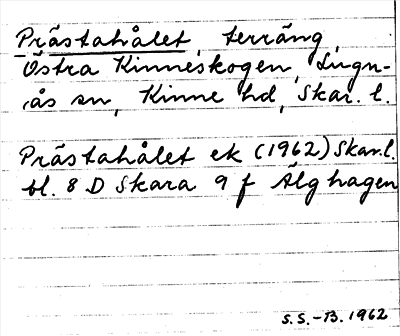 Prästahålet, terräng,
Östra Kinneskogen, Lugn-
ås sn, Kinne hd, Skar. l.
Prästahålet ek (1962) Skar.l.
bl. 8 D Skara 9 f Älghagen
S.S.-B. 1962